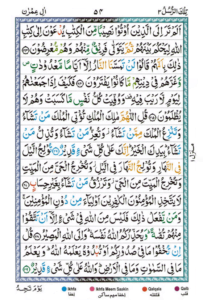 تِلْكَ الرُّسُلُ ٣ ٥٤ اٰل عِمْرٰن ٣
اَلَمْ تَرَ اِلَى الَّذِيْنَ اُوْتُوْا نَصِيْبًا مِّنَ الْكِتٰبِ يُدْعَوْنَ اِلٰى كِتٰبِ
اللّٰهِ لِيَحْكُمَ بَيْنَهُمْ ثُمَّ يَتَوَلّٰى فَرِيْقٌ مِّنْهُمْ وَهُمْ مُّعْرِضُوْنَ
ذٰلِكَ بِاَنَّهُمْ قَالُوْا لَنْ تَمَسَّنَا النَّارُ اِلَّاۤ اَيَّامًا مَّعْدُوْدٰتٍ
وَّغَرَّهُمْ فِيْ دِيْنِهِمْ مَّا كَانُوْا يَفْتَرُوْنَ فَكَيْفَ اِذَا جَمَعْنٰهُمْ
لِيَوْمٍ لَّا رَيْبَ فِيْهِ وَوُفِّيَتْ كُلُّ نَفْسٍ مَّا كَسَبَتْ وَهُمْ لَا
يُظْلَمُوْنَ قُلِ اللّٰهُمَّ مٰلِكَ الْمُلْكِ تُؤْتِي الْمُلْكَ مَنْ تَشَآءُ
وَتَنْزِعُ الْمُلْكَ مِمَّنْ تَشَآءُ وَتُعِزُّ مَنْ تَشَآءُ وَتُذِلُّ مَنْ
تَشَآءُ بِيَدِكَ الْخَيْرُ اِنَّكَ عَلٰى كُلِّ شَيْءٍ قَدِيْرٌ تُوْلِجُ الَّيْلَ
فِي النَّهَارِ وَتُوْلِجُ النَّهَارَ فِي الَّيْلِ وَتُخْرِجُ الْحَيَّ مِنَ الْمَيِّتِ
وَتُخْرِجُ الْمَيِّتَ مِنَ الْحَيِّ وَتَرْزُقُ مَنْ تَشَآءُ بِغَيْرِ حِسَابٍ
لَا يَتَّخِذِ الْمُؤْمِنُوْنَ الْكٰفِرِيْنَ اَوْلِيَآءَ مِنْ دُوْنِ الْمُؤْمِنِيْنَ
وَمَنْ يَّفْعَلْ ذٰلِكَ فَلَيْسَ مِنَ اللّٰهِ فِيْ شَيْءٍ اِلَّاۤ اَنْ تَتَّقُوْا
مِنْهُمْ تُقٰىةً وَيُحَذِّرُكُمُ اللّٰهُ نَفْسَهٗ وَاِلَى اللّٰهِ الْمَصِيْرُ قُلْ
اِنْ تُخْفُوْا مَا فِيْ صُدُوْرِكُمْ اَوْ تُبْدُوْهُ يَعْلَمْهُ اللّٰهُ وَيَعْلَمُ
مَا فِي السَّمٰوٰتِ وَمَا فِي الْاَرْضِ وَاللّٰهُ عَلٰى كُلِّ شَيْءٍ قَدِيْرٌ
Ikhfa Ikhfa Meem Saakin Qalqala Qalb